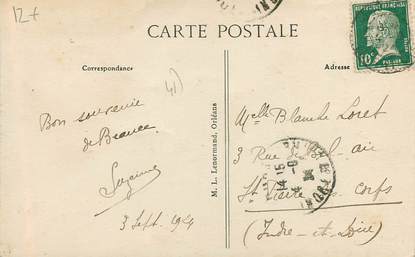 12+
CARTE POSTALE
Correspondance
Adresse
REPUBLIQUE FRANÇAISE
10c
Bon souvenir
de Beauce.
Suzanne
3 Sept. 1924
M. L. Lenormand, Orléans
Melle Blanche Loret
3 Rue du Bel-air
St Pierre des Corps
(Indre-et-Loire)